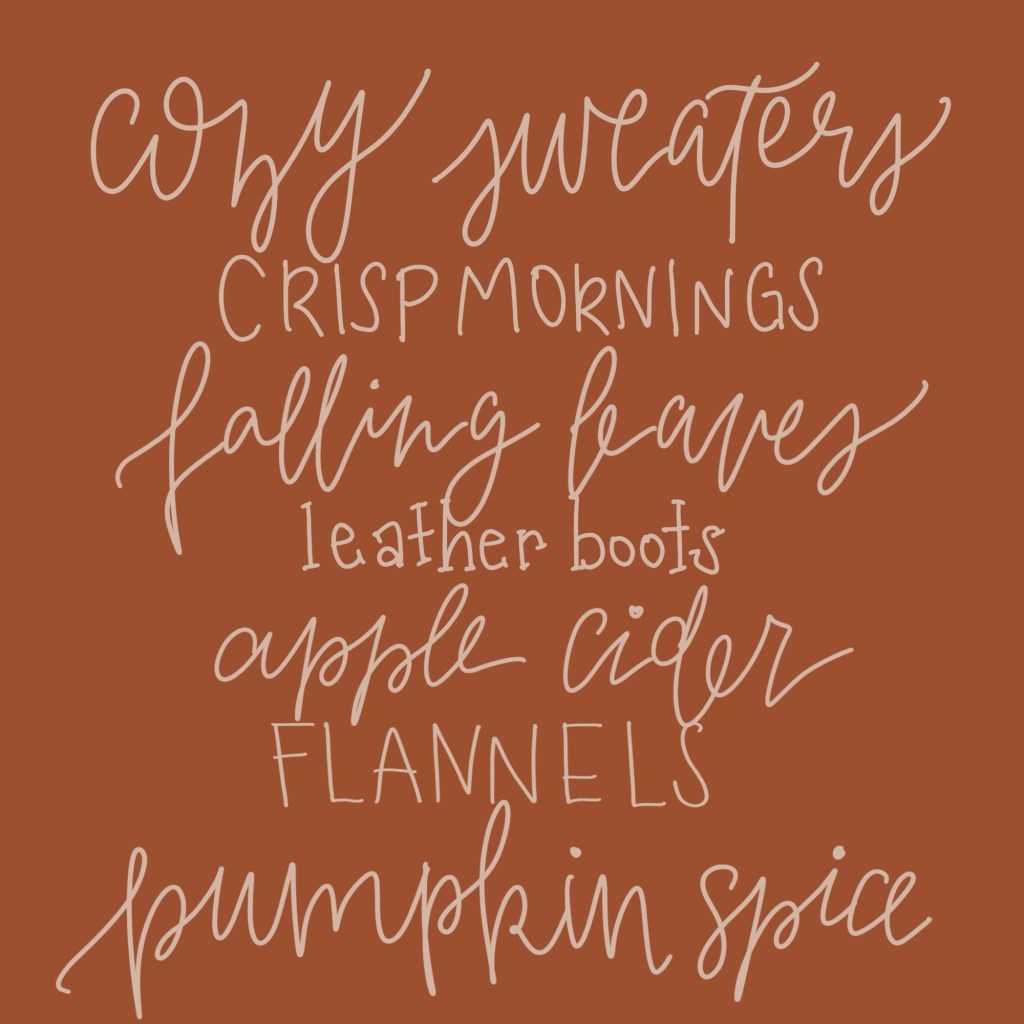 cozy sweaters
CRISP MORNINGS
falling leaves
leather boots
apple cider
FLANNELS
pumpkin spice